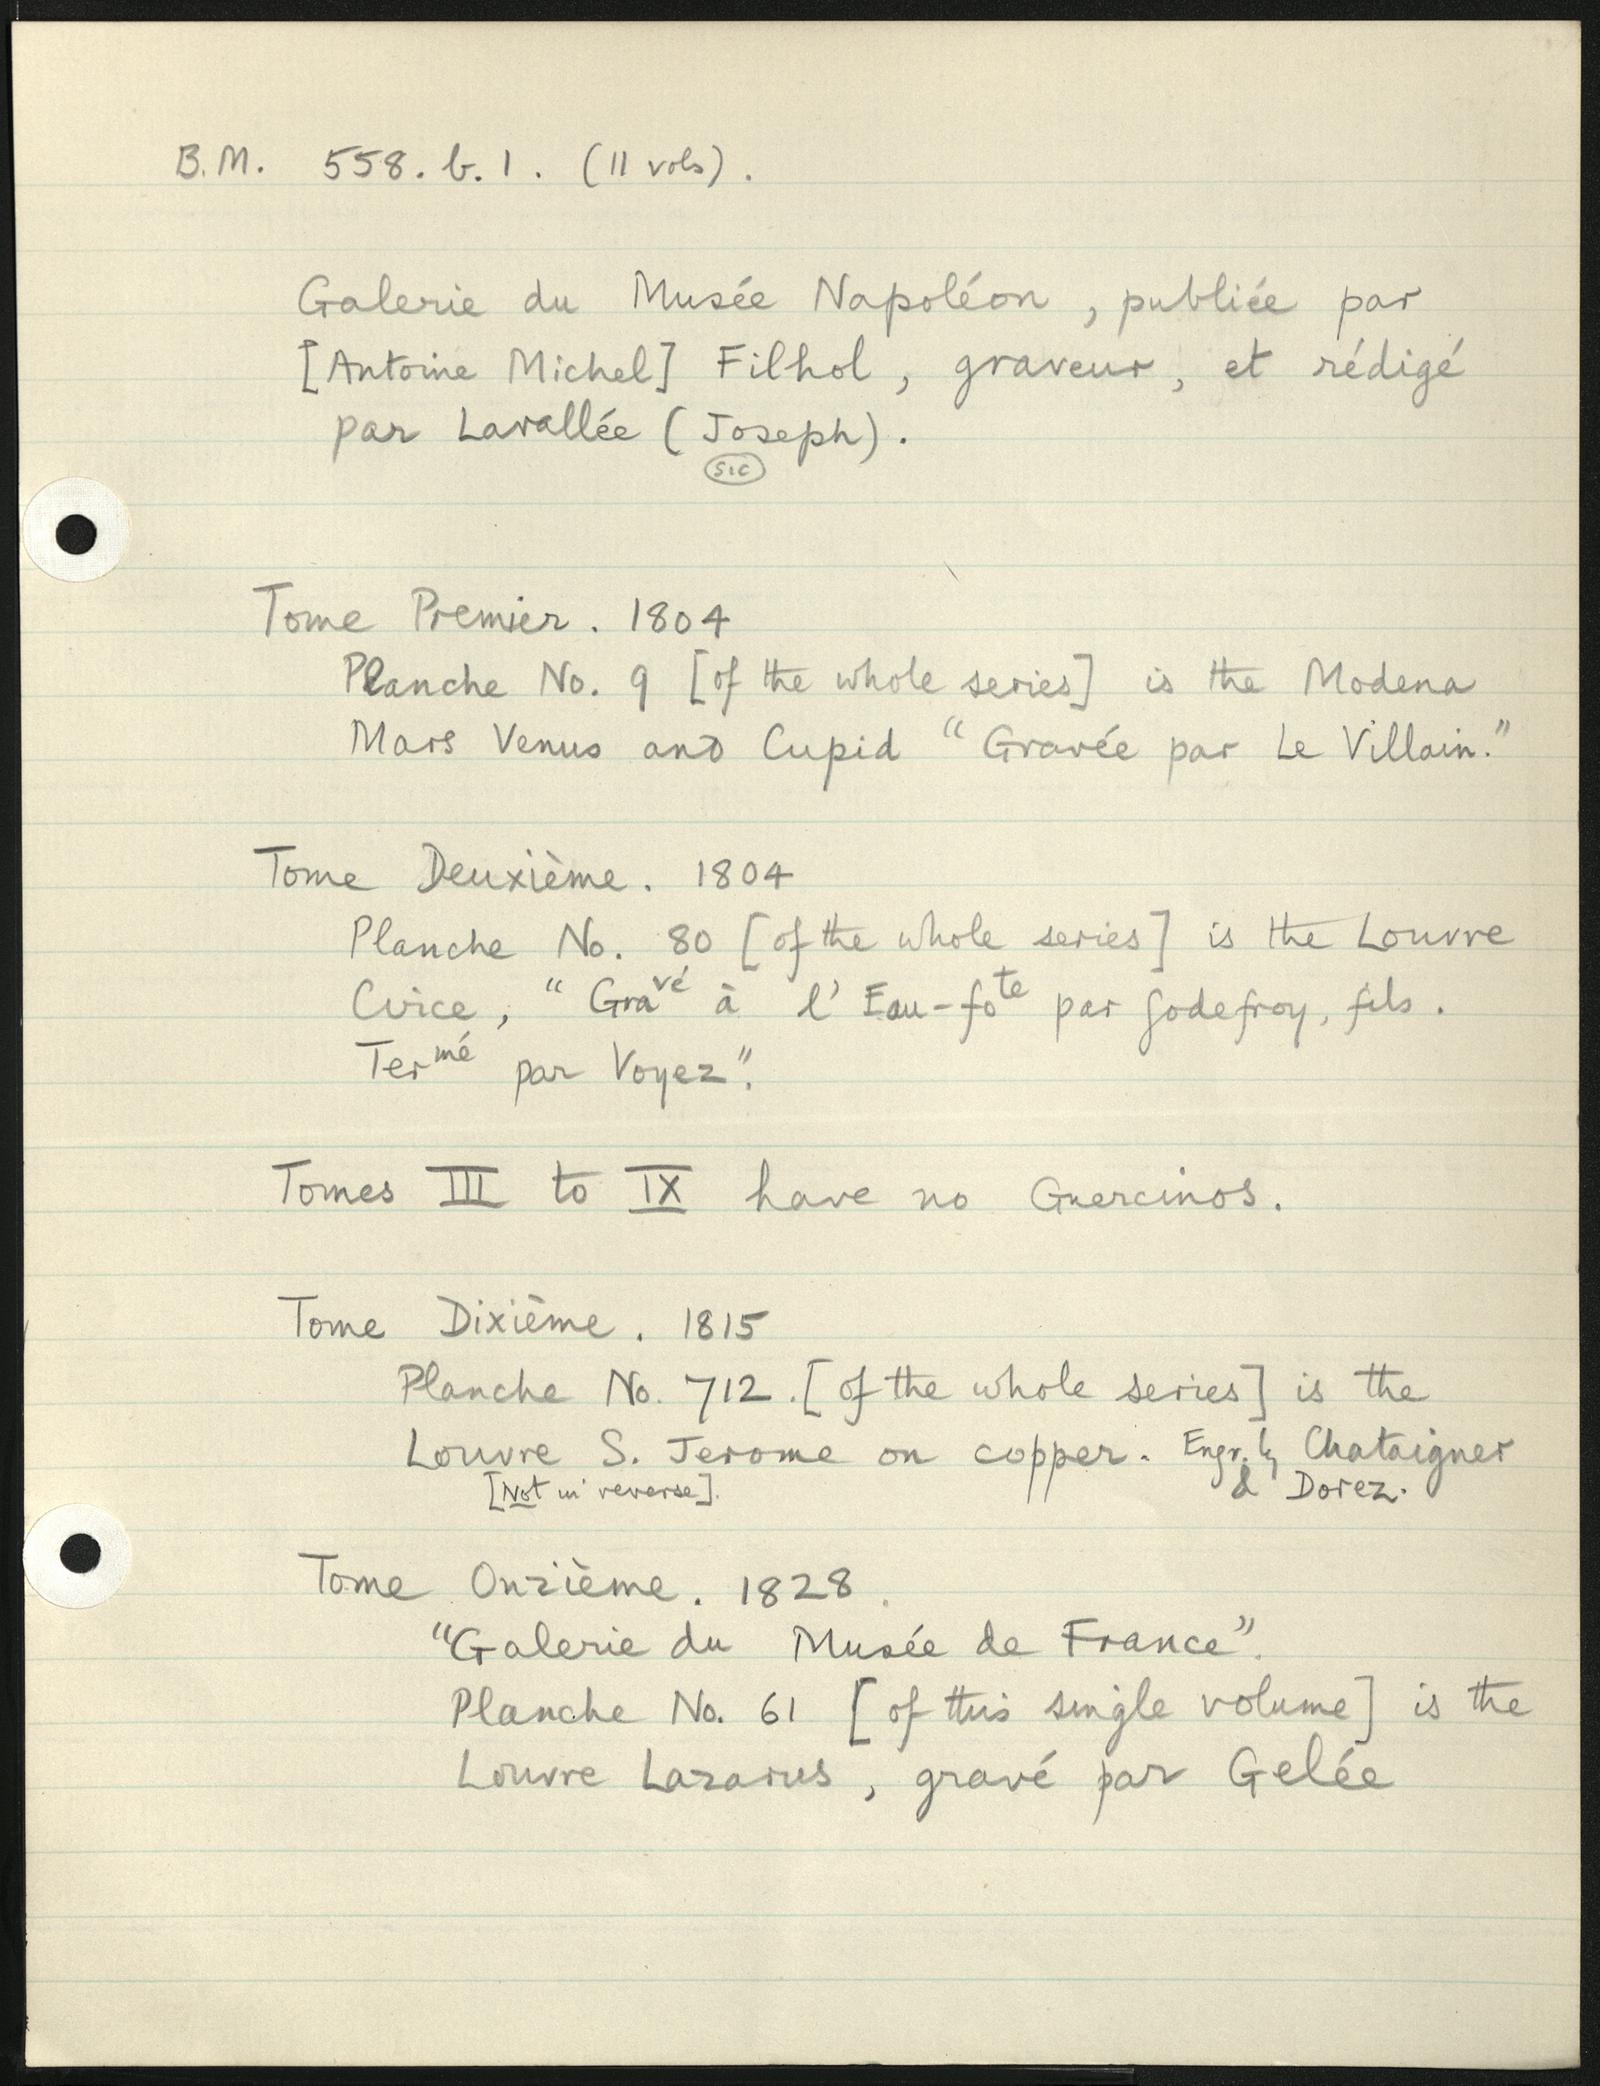 B.M. 558. b. 1. (11 vols).
Galerie du Musée Napoléon, publiée par
[Antoine Michel] Filhol, graveur, et rédigé
par Lavallée (Joseph).
sic
Tome Premier. 1804
Planche No. 9 [of the whole series] is the Modena
Mars Venus and Cupid "Gravée par Le Villain."
Tome Deuxième. 1804
Planche No. 80 [of the whole series] is the Louvre
Circe, "Gravé à l'Eau-fote par Godefroy, fils.
Termé par Voyez".
Tomes III to IX have no Guercinos.
Tome Dixième. 1815
Planche No. 712. [of the whole series] is the
Louvre S. Jerome on copper. Engr. by Chataigner
[Not in reverse]. & Dorez.
Tome Onzième. 1828.
"Galerie du Musée de France".
Planche No. 61 [of this single volume] is the
Louvre Lazarus, gravé par Gelée